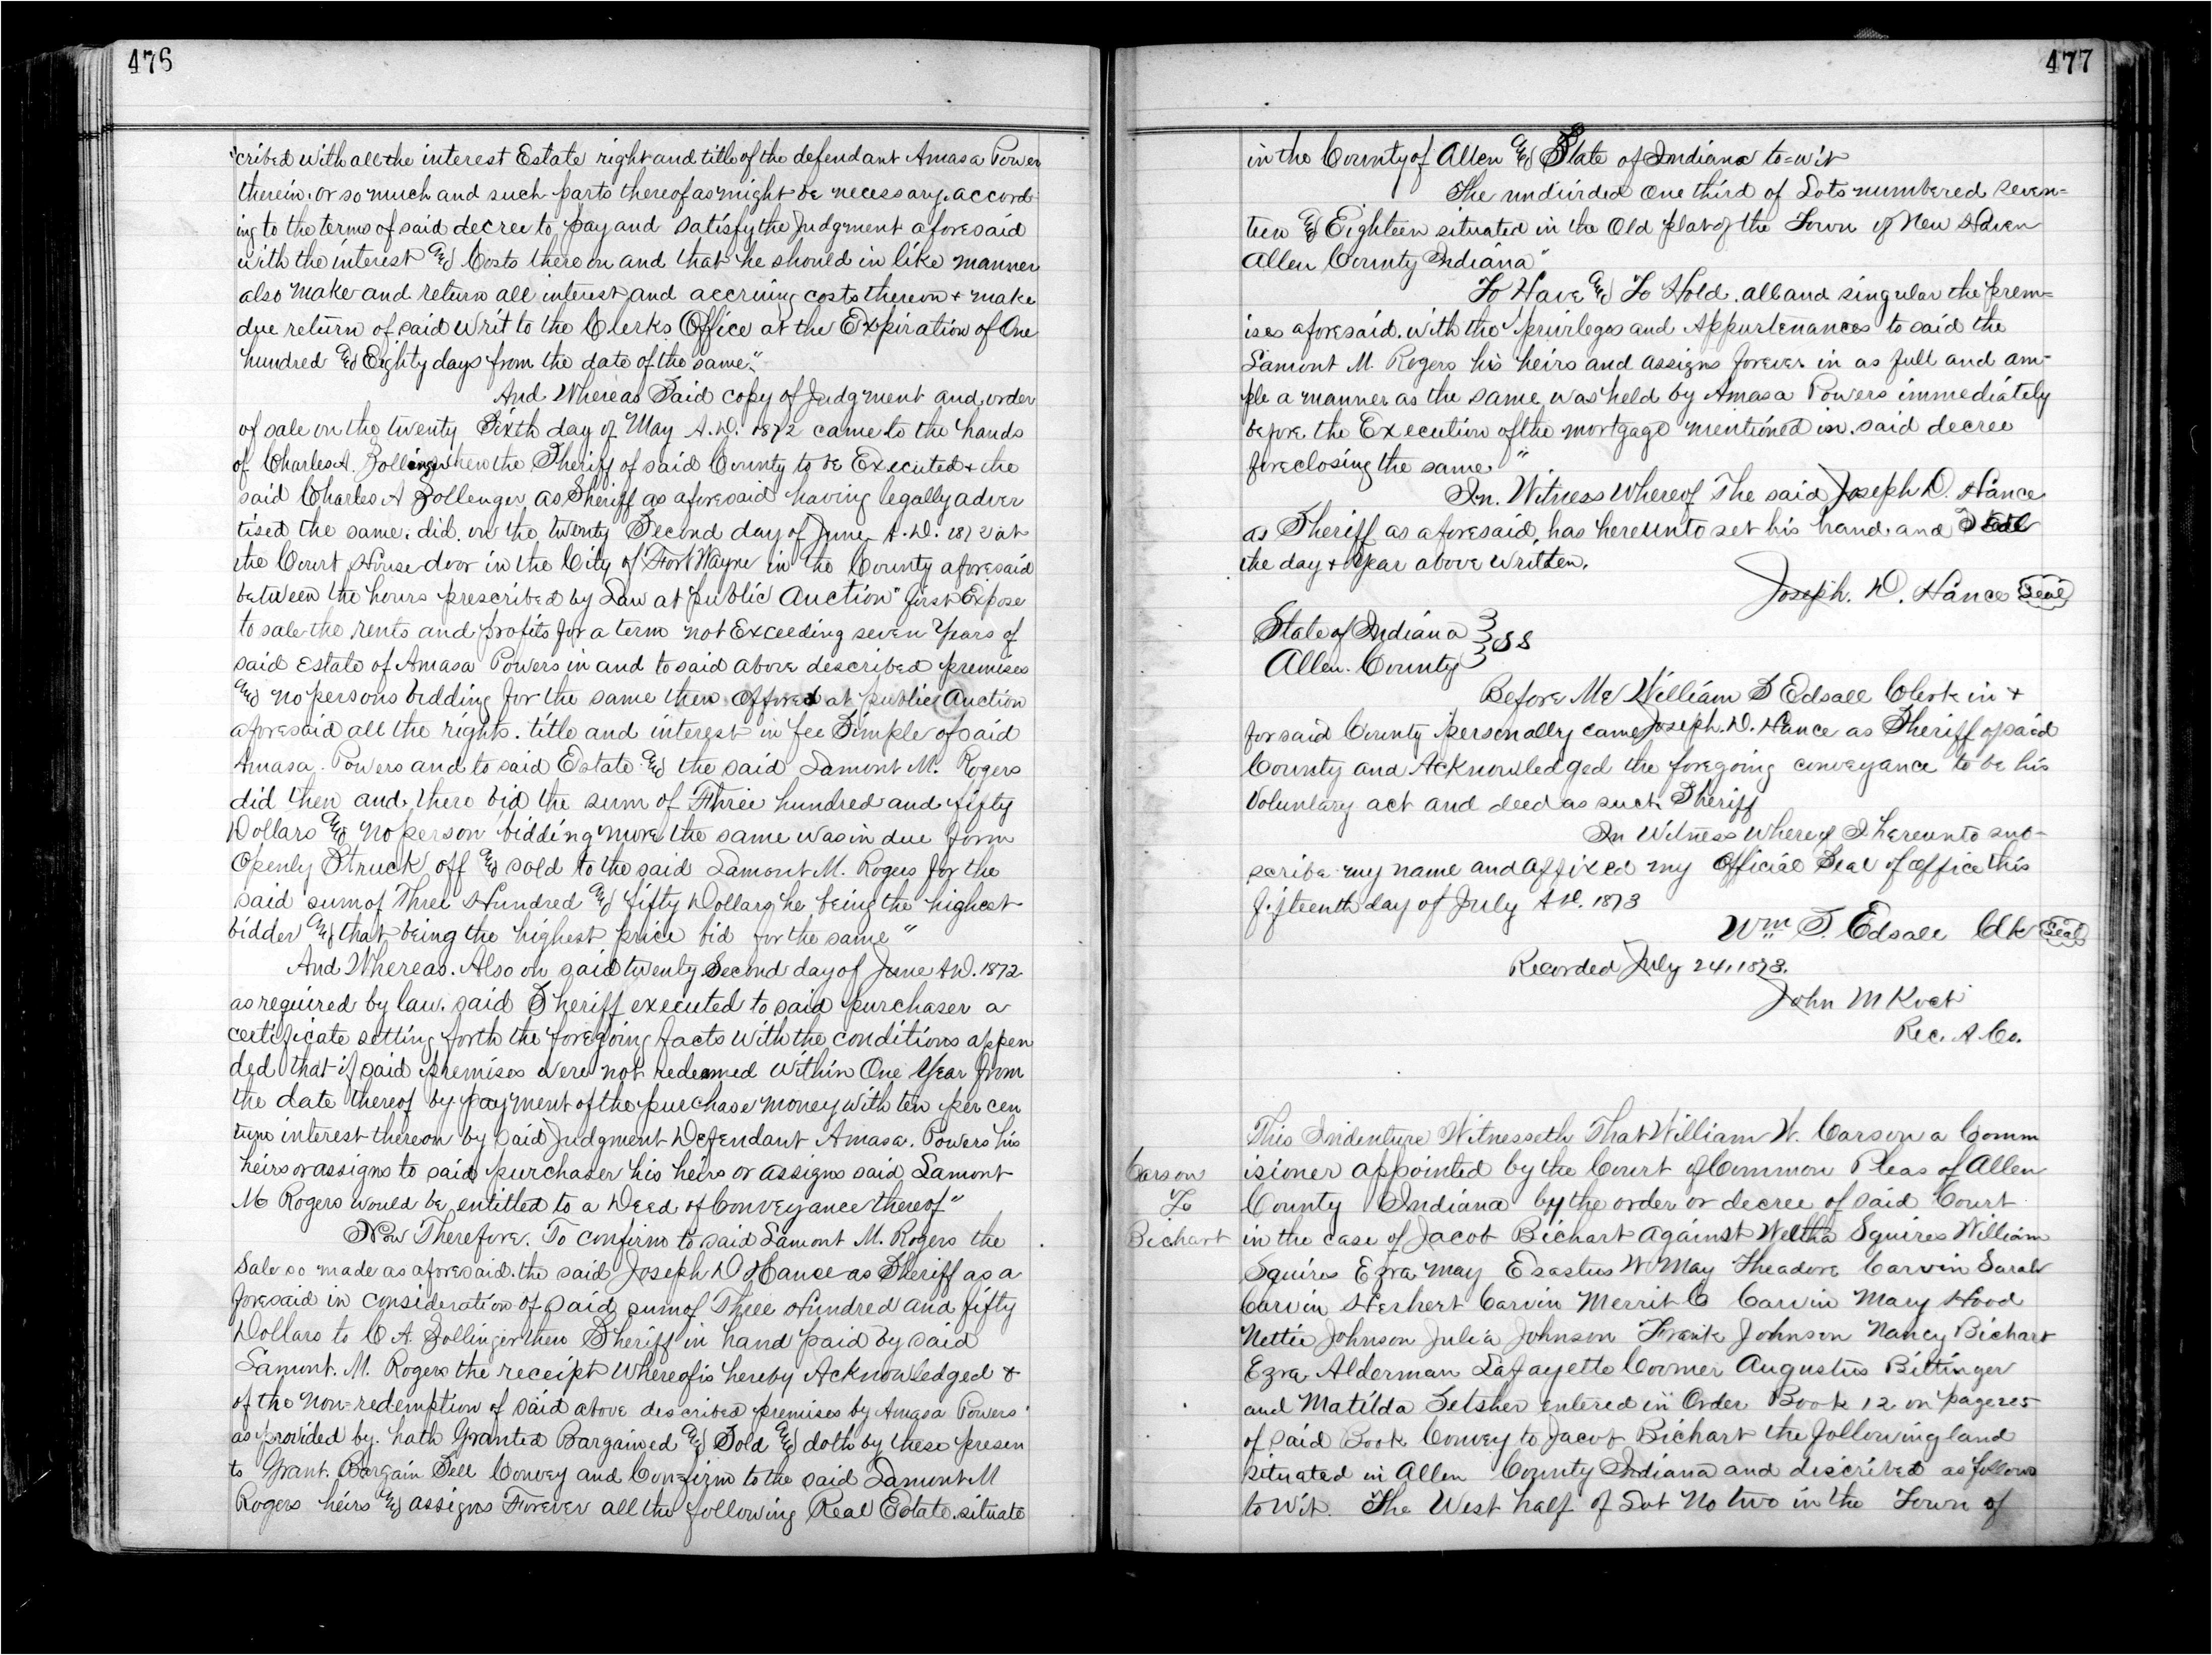 476
"cribed with all the interest Estate right and title of the defendant Amasa Power
therein. or so much and such parts thereof as might be necessary. accord
ing to the terms of said decree to pay and satisfy the Judgment aforesaid
with the interest and Costs there on and that he should in like manner
also make and return all interest and accruing costs thereon + make
due return of said writ to the Clerks Office at the Expiration of One
hundred and Eighty days from the date of the same."
And Whereas Said copy of Judgment and order
of sale on the twenty Sixth day of May A.D. 1872 came to the hands
of Charles A. Zollinger then the Sheriff of said County to be Executed + the
said Charles A Zollenger as Sheriff as aforesaid having legally adver
tised the same. did. on the twenty Second day of June A.D. 1872 at
the Court House door in the City of Fort Wayne in the County aforesaid
between the hours prescribed by Law at public Auction" first Expose
to sale the rents and profits for a term not Exceeding seven Years of
said Estate of Amasa Powers in and to said above described premises
and no persons bidding for the same then offered at public Auction
aforesaid all the rights. title and interest in fee Simple of said
Amasa. Powers and to said Estate and the said Lamont M. Rogers
did then and there bid the sum of Three hundred and fifty
Dollars and no person bidding more the same was in due form
Openly Struck off and sold to the said Lamont M. Rogers for the
said sum of Three Hundred and fifty Dollars he being the highest
bidder and that being the highest price bid for the same"
And Whereas. Also on said twenty Second day of June A.D. 1872
as required by law. said Sheriff executed to said purchaser a
certificate setting forth the foregoing facts with the conditions appen
ded that if said premises were not redeemed within One Year from
the date thereof by payment of the purchase money with ten per cen
tum interest thereon by said Judgment Defendant Amasa. Powers his
heirs or assigns to said purchaser his heirs or assigns said Lamont
M Rogers would be entitled to a Deed of Conveyance thereof"
Now Therefore. To confirm to said Lamont M. Rogers the
Sale so made as aforesaid. the said Joseph D Hance as Sheriff as a
foresaid in consideration of said sum of Three Hundred and fifty
Dollars to C A. Zollinger then Sheriff in hand paid by said
Lamont. M. Rogers the receipt Whereof is hereby Acknowledged +
of the non=redemption of said above described premises by Amasa Powers
as provided by. hath Granted Bargained and Sold and doth by these presen
ts Grant. Bargain Sell Convey and Confirm to the said Lamont M
Rogers heirs and assigns Forever all the following Real Estate. situate
477
in the County of Allen and State of Indiana to=wit
The undivided One third of Lots numbered seven=
teen and Eighteen situated in the Old plat of the Town of New Haven
Allen County Indiana"
To Have and To Hold. all and singular the prem=
ises aforesaid. with the privileges and Appurtenances to said the
Lamont M. Rogers his heirs and assigns forever in as full and am=
ple a manner as the same was held by Amasa Powers immediately
before the Execution of the mortgage mentioned in. said decree
foreclosing the same."
In. Witness Whereof The said Joseph D. Hance
as Sheriff as aforesaid, has hereunto set his hand and Seal
the day + Year above Written.
Joseph. D. Hance Seal
State of Indiana
Allen. County SS
Before Me William S Edsall Clerk in +
for said County personally came Joseph. D. Hance as Sheriff of said
County and Acknowledged the foregoing conveyance to be his
Voluntary act and deed as such Sheriff
In Witness Whereof I hereunto sub=
scribe my name and affixed my Official Seal of office this
fifteenth day of July A D. 1873
Wm S. Edsall Clk Seal
Recorded July 24, 1873.
John M Koch
Rec. A. Co.
Carson
To
Bichart
This Indenture Witnesseth That William W. Carson a Comm
isioner appointed by the Court of Common Pleas of Allen
County Indiana by the order or decree of said Court
in the case of Jacob Bichart against Weltha Squires William
Squires Ezra May Erastus W May Theadore Carvin Sarah
Carvin Herbert Carvin Merrit C Carvin Mary Hood
Nettie Johnson Julia Johnson Frank Johnson Nancy Bichart
Ezra Alderman Lafayette Coomer Augustus Bittinger
and Matilda entered in Order Book 12 on page
of said Book Convey to Jacob Bichart the following land
situated in Allen County Indiana and described as follows
to Wit. The West half of Lot No two in the Town of